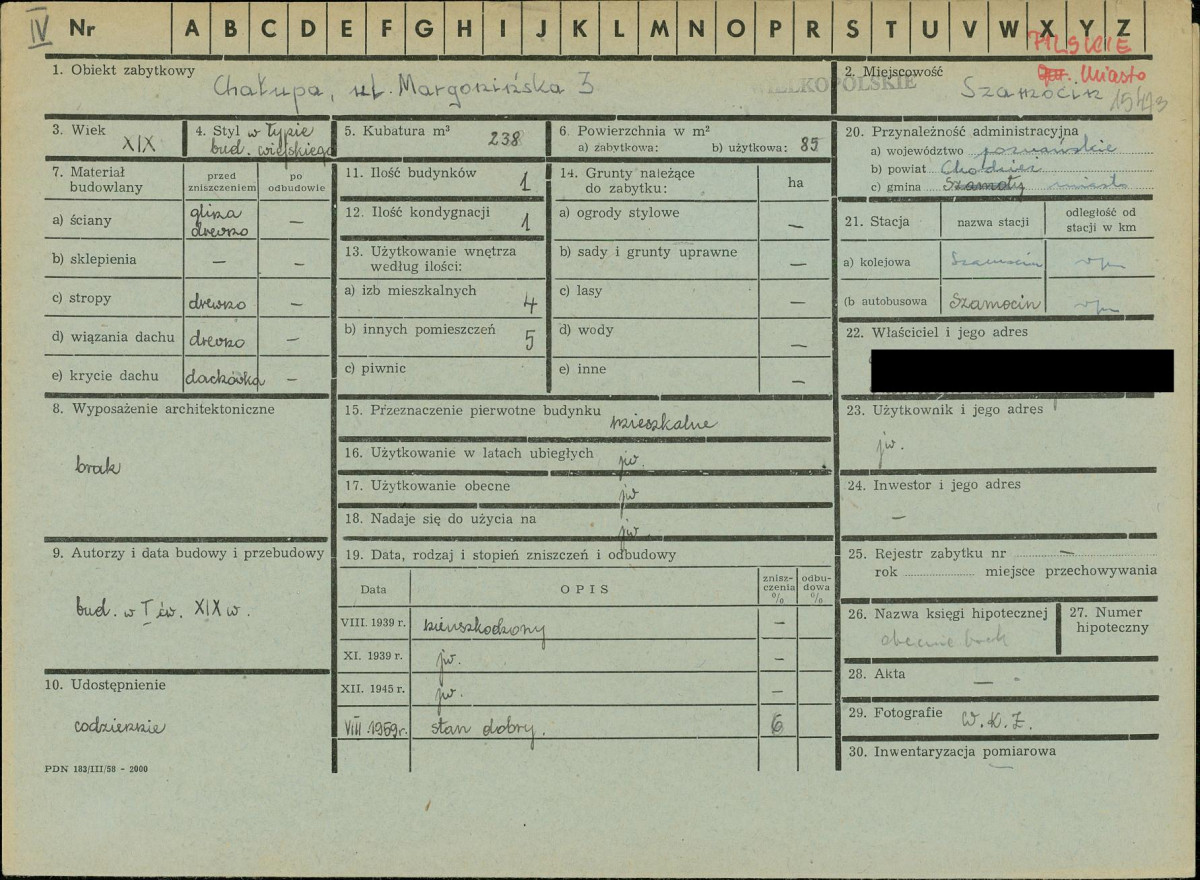 IV Nr A B C D E F G H I J K L M N O P R S T U V W X Y Z
PILSKIE
miasto
15473
1. Obiekt zabytkowy
Chałupa, ul. Margonińska 3
WIELKOPOLSKIE
2. Miejscowość
Szamocin
3. Wiek
XIX
4. Styl w typie
bud. wiejskiego
5. Kubatura m³
238
6. Powierzchnia w m²
a) zabytkowa: b) użytkowa: 85
7. Materiał budowlany
przed zniszczeniem
po odbudowie
a) ściany
glina
drewno
—
b) sklepienia — —
c) stropy drewno —
d) wiązania dachu drewno —
e) krycie dachu dachówka —
8. Wyposażenie architektoniczne
brak
9. Autorzy i data budowy i przebudowy
bud. w I ćw. XIX w.
10. Udostępnienie
codziennie
PDN 183/III/58 - 2000
11. Ilość budynków 1
12. Ilość kondygnacji 1
13. Użytkowanie wnętrza
według ilości:
a) izb mieszkalnych 4
b) innych pomieszczeń 5
c) piwnic
14. Grunty należące
do zabytku:
ha
a) ogrody stylowe —
b) sady i grunty uprawne —
c) lasy —
d) wody —
e) inne —
15. Przeznaczenie pierwotne budynku
mieszkalne
16. Użytkowanie w latach ubiegłych jw.
17. Użytkowanie obecne jw
18. Nadaje się do użycia na jw.
19. Data, rodzaj i stopień zniszczeń i odbudowy
Data
OPIS
znisz-
czenia
%
odbu-
dowa
%
VIII. 1939 r. nieuszkodzony —
XI. 1939 r. jw. —
XII. 1945 r. jw. —
VIII. 1959 r. stan dobry. 6
20. Przynależność administracyjna
a) województwo poznańskie
b) powiat Chodzież
c) gmina Szamoty miasto
21. Stacja
nazwa stacji
odległość od
stacji w km
a) kolejowa Szamocin
(b autobusowa Szamocin
22. Właściciel i jego adres
23. Użytkownik i jego adres
jw.
24. Inwestor i jego adres
—
25. Rejestr zabytku nr —
rok miejsce przechowywania
26. Nazwa księgi hipotecznej
obecnie brak
27. Numer
hipoteczny
28. Akta —
29. Fotografie W.K.Z.
30. Inwentaryzacja pomiarowa
—